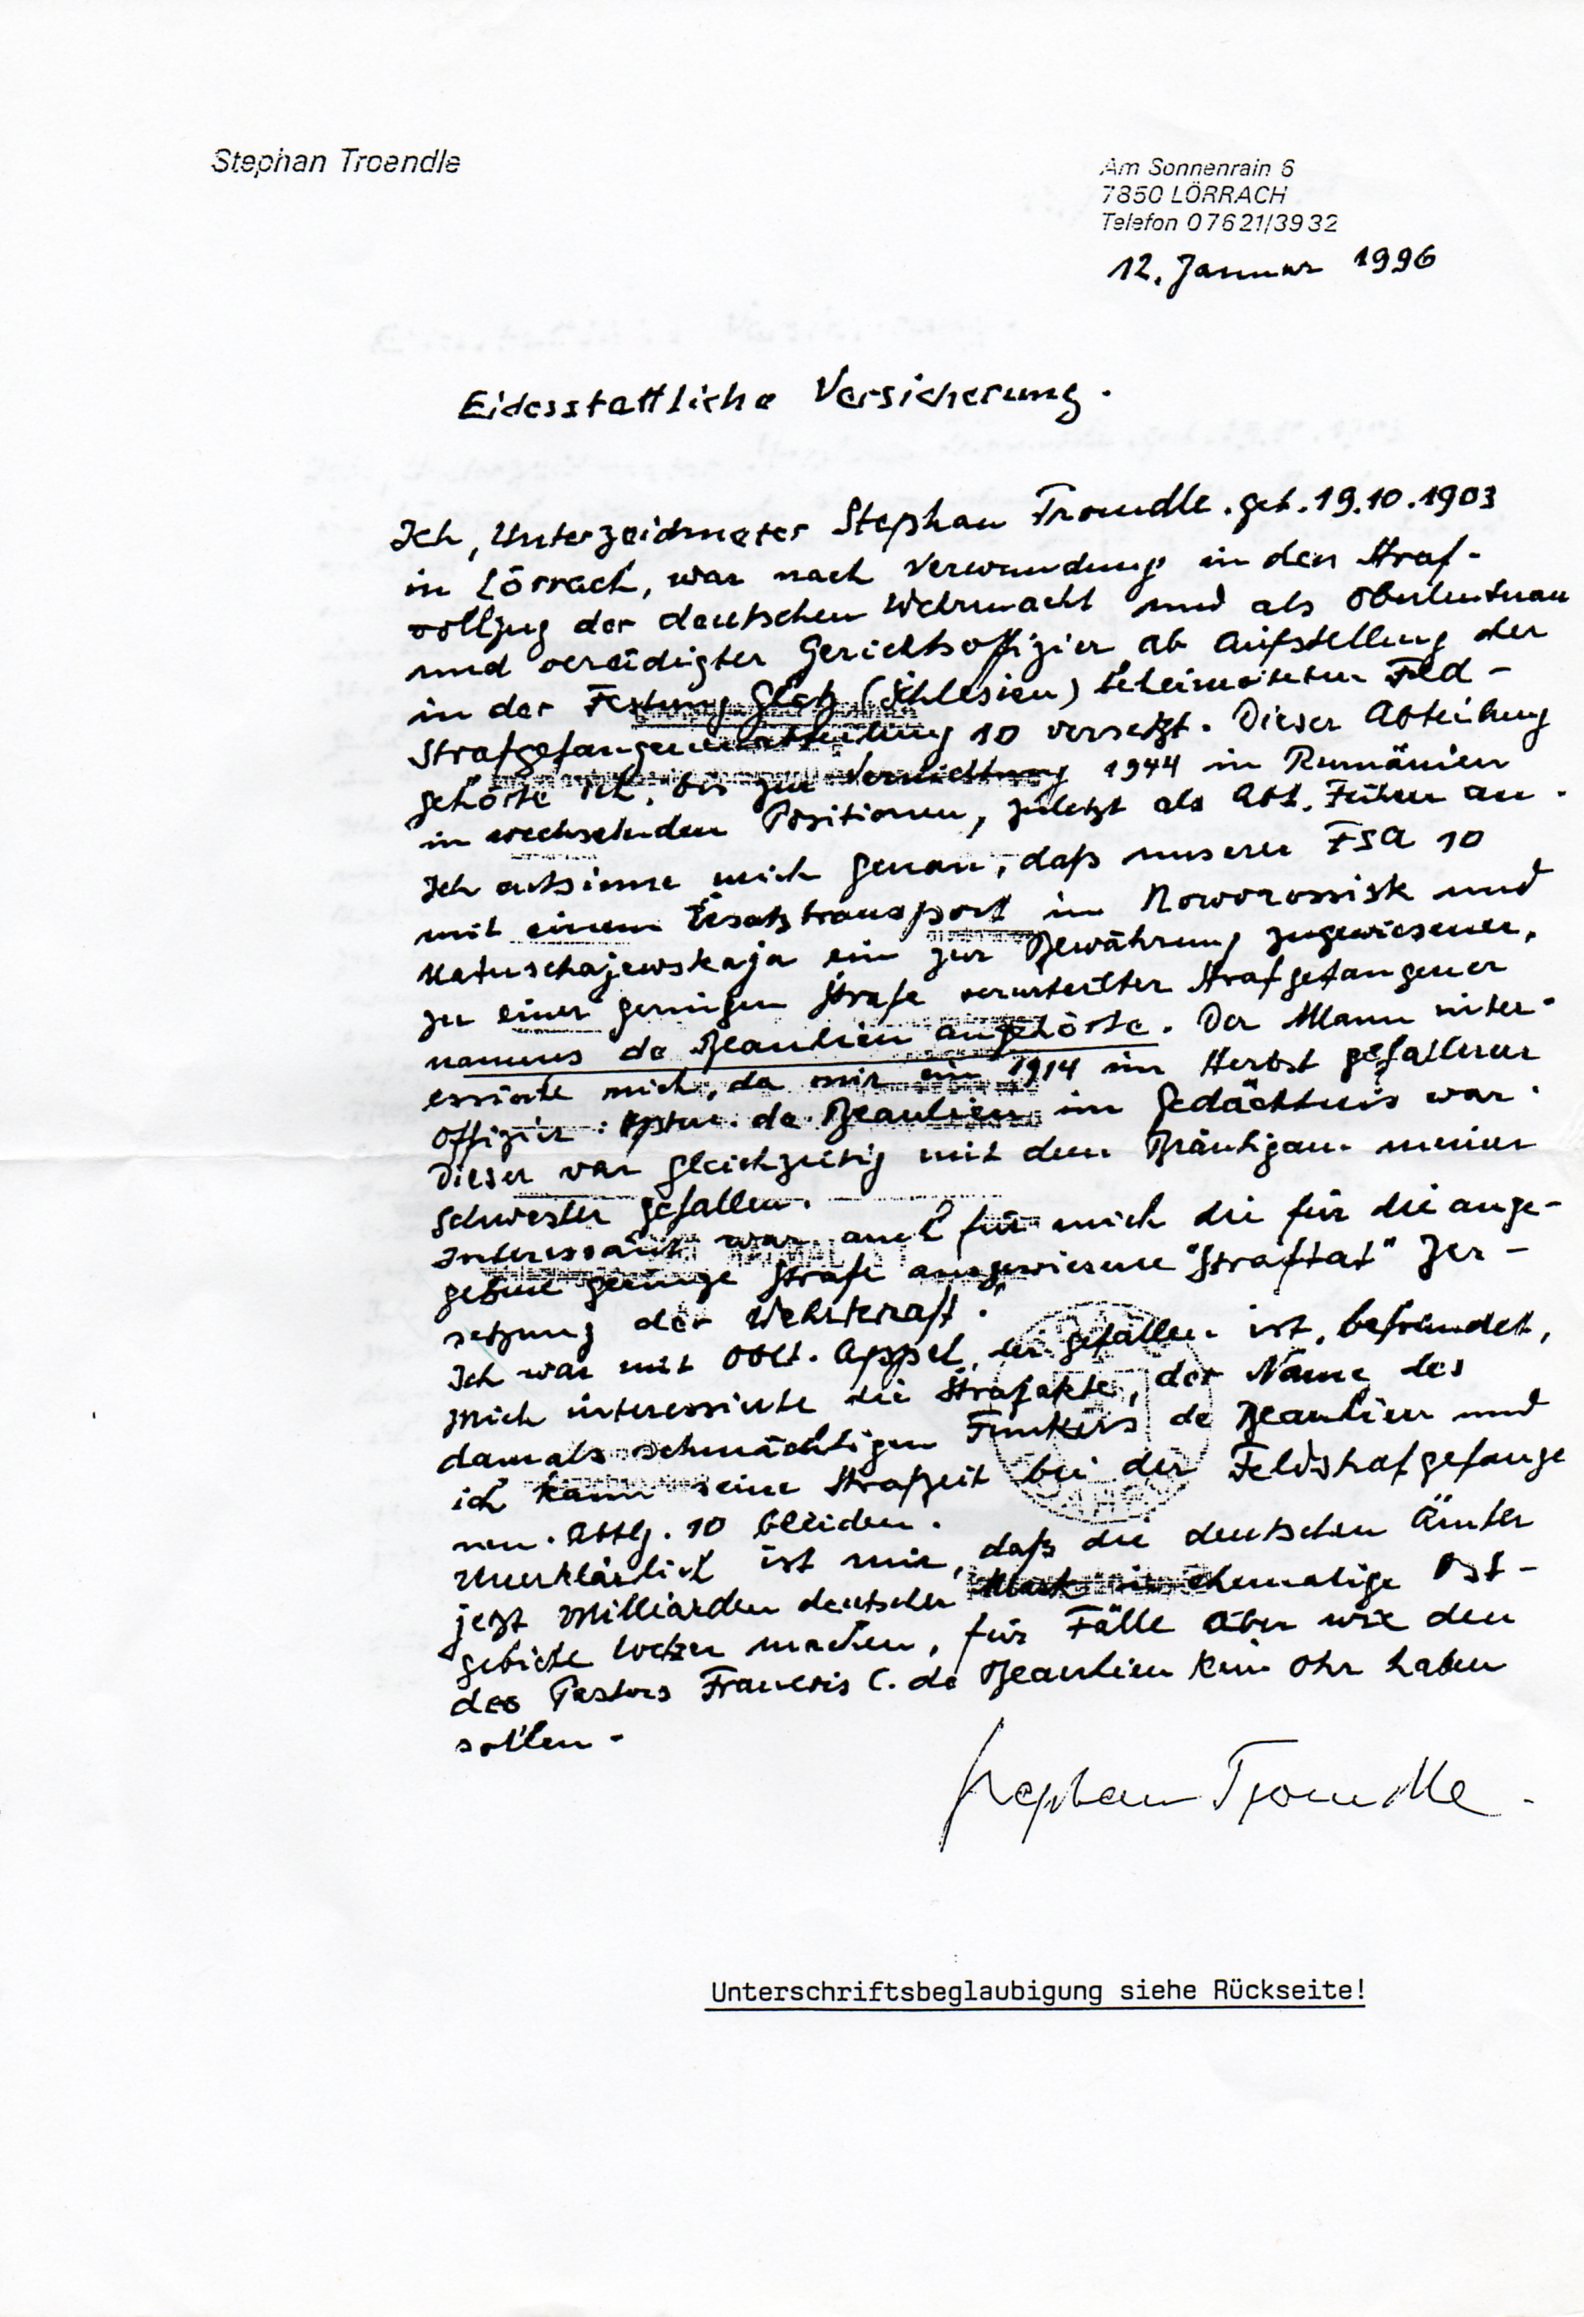 Stephan Troendle
Am Sonnenrain 6
7850 LÖRRACH
Telefon 07621/3932
12. Januar 1996
Eidesstattliche Versicherung.
Ich, Unterzeichneter Stephan Troendle. geb. 19.10.1903
in Lörrach, war nach Verwundung in den Straf-
vollzug der deutschen Wehrmacht und als Oberleutnan
und vereidigter Gerichtsoffizier ab Aufstellung der
in der Festung Glatz (Schlesien) beheimateten Feld-
Strafgefangenenabteilung 10 versetzt. Dieser Abteilung
gehörte ich, bis zur Vernichtung 1944 in Rumänien
in wechselnden Positionen, zuletzt als Abt. Führer an.
Ich entsinne mich genau, daß unserer FSA 10
mit einem Ersatztransport in Noworossisk und
Natuschajewskaja ein zur Bewährung zugewiesener,
zu einer geringen Strafe verurteilter Strafgefangener
namens de Beaulieu angehörte. Der Mann inter-
essierte mich, da mir ein 1914 im Herbst gefallener
Offizier de Beaulieu im Gedächtnis war.
Dieser war gleichzeitig mit dem Bräutigam meiner
Schwester gefallen.
Interessant war auch für mich die für die ange-
gebene geringe Strafe angewiesene "Straftat" Zer-
setzung der Wehrkraft."
Ich war mit Oblt. Appel, der gefallen ist, befreundet,
mich interessierte die Strafakte, der Name des
damals schmächtigen Funkers de Beaulieu und
ich kann seine Strafzeit bei der Feldstrafgefange
nen. Abtlg. 10 beeiden.
Unerklärlich ist mir, daß die deutschen Ämter
jetzt Milliarden deutscher Mark in ehemalige Ost-
gebiete locker machen, für Fälle aber wie den
des Pastors Francois C. de Beaulieu kein Ohr haben
sollen.-
Stephan Troendle.
Unterschriftsbeglaubigung siehe Rückseite!